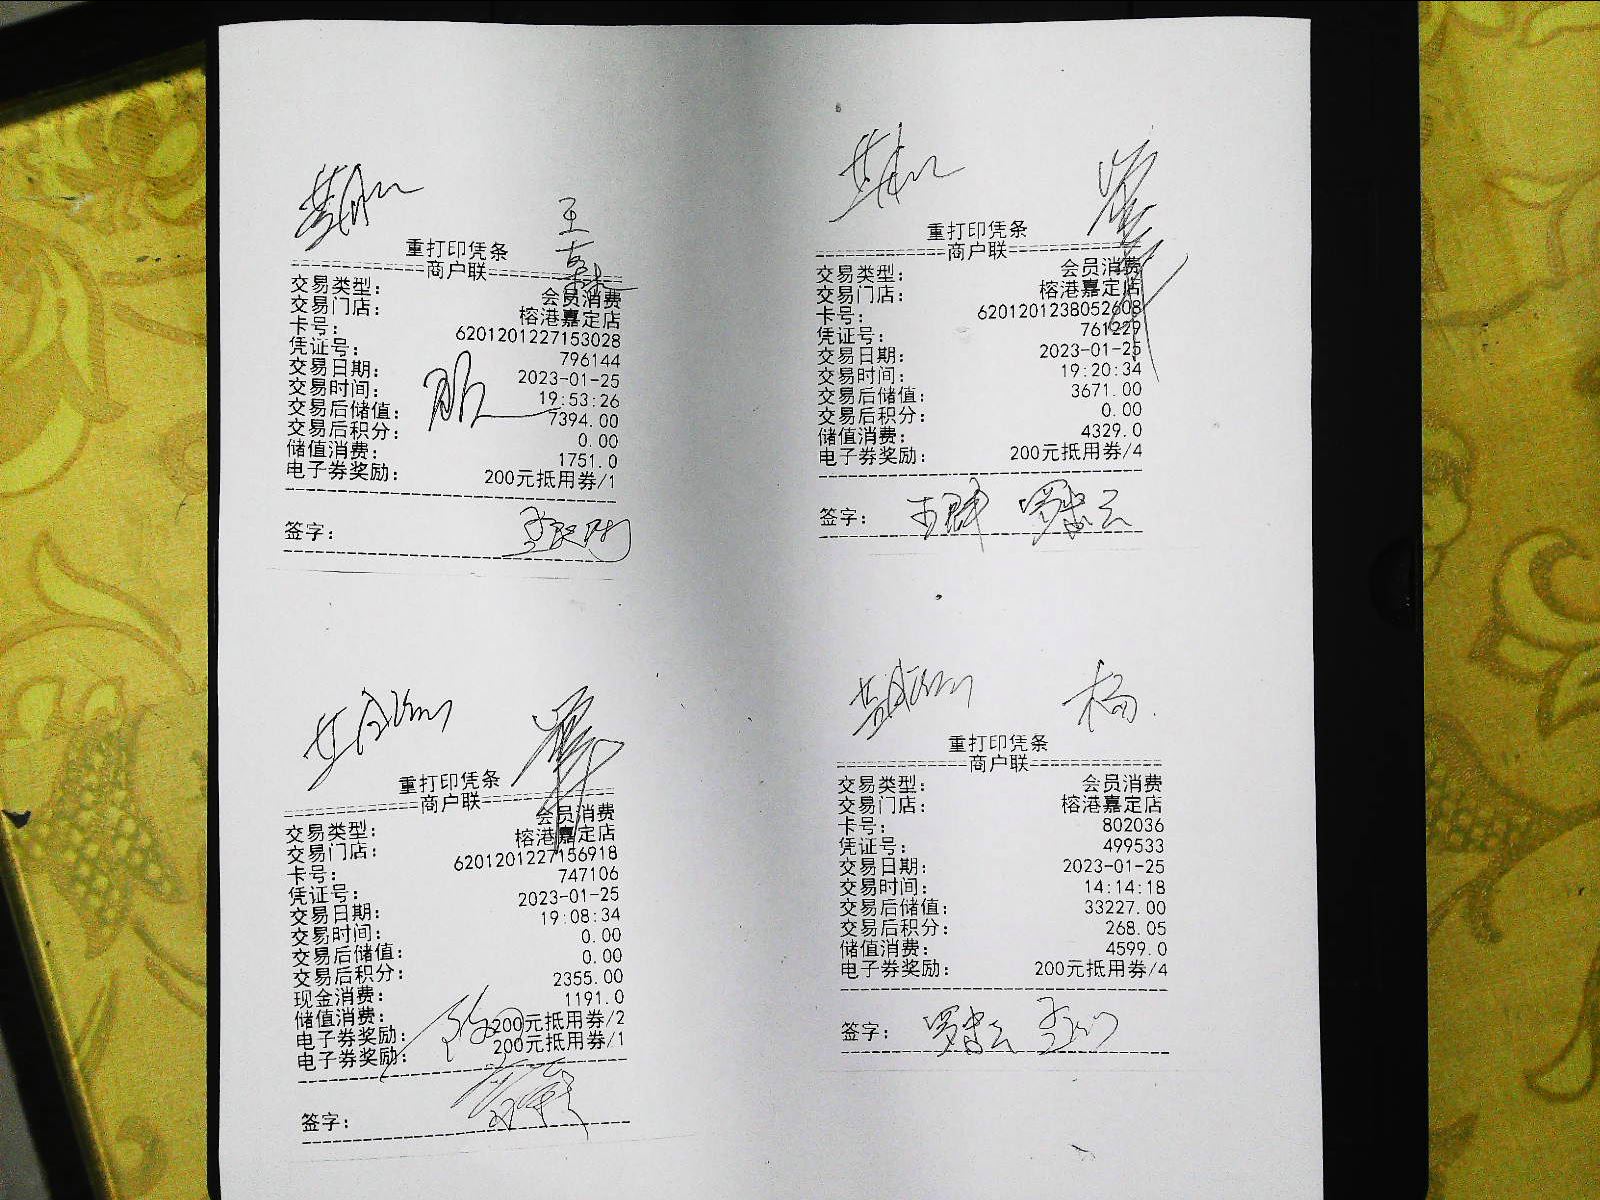 重打印凭条
商户联
交易类型： 会员消费
交易门店： 榕港嘉定店
卡号： 6201201227153028
凭证号： 796144
交易日期： 2023-01-25
交易时间： 19:53:26
交易后储值： 7394.00
交易后积分： 0.00
储值消费： 1751.0
电子券奖励： 200元抵用券/1
签字：
重打印凭条
商户联
交易类型： 会员消费
交易门店： 榕港嘉定店
卡号： 6201201238052608
凭证号： 761229
交易日期： 2023-01-25
交易时间： 19:20:34
交易后储值： 3671.00
交易后积分： 0.00
储值消费： 4329.0
电子券奖励： 200元抵用券/4
签字：
重打印凭条
商户联
交易类型： 会员消费
交易门店： 榕港嘉定店
卡号： 6201201227156918
凭证号： 747106
交易日期： 2023-01-25
交易时间： 19:08:34
交易后储值： 0.00
交易后积分： 0.00
现金消费： 2355.00
储值消费： 1191.0
电子券奖励： 200元抵用券/2
电子券奖励： 200元抵用券/1
签字：
杨
重打印凭条
商户联
交易类型： 会员消费
交易门店： 榕港嘉定店
卡号： 802036
凭证号： 499533
交易日期： 2023-01-25
交易时间： 14:14:18
交易后储值： 33227.00
交易后积分： 268.05
储值消费： 4599.0
电子券奖励： 200元抵用券/4
签字：